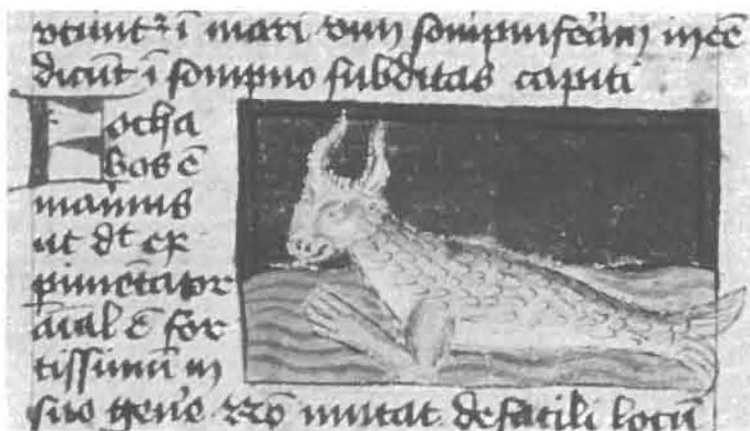 vtunt᷑ ī mari vim sompniferam inēē
dicūt ī sompno subditas capiti
Focha
bos ē
marinus
ut dt ex
ꝑimētator
aīal ē for
tissimū in
suo gen̄e Nō mutat de facili locū